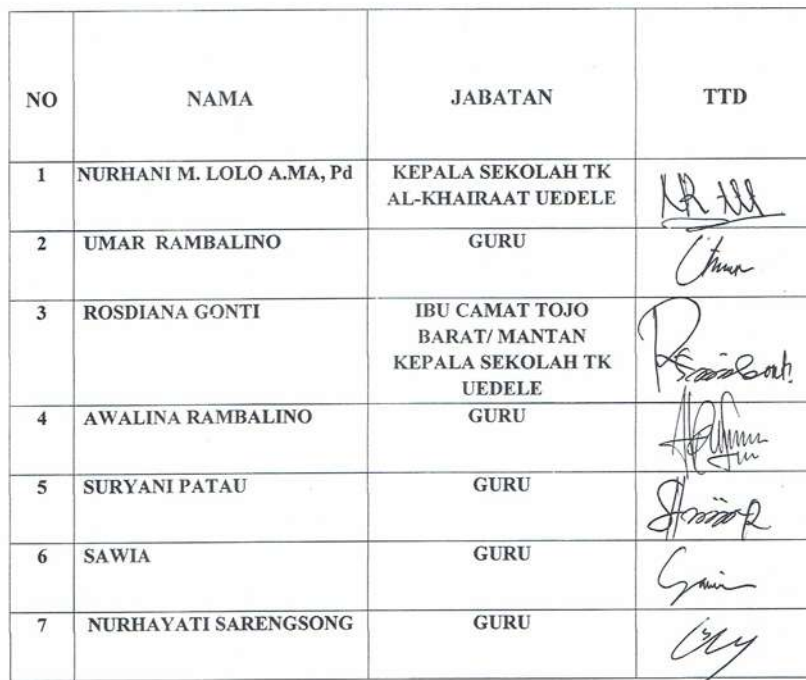 NO NAMA JABATAN TTD
1 NURHANI M. LOLO A.MA, Pd KEPALA SEKOLAH TK
AL-KHAIRAAT UEDELE
2 UMAR RAMBALINO GURU
3 ROSDIANA GONTI IBU CAMAT TOJO
BARAT/ MANTAN
KEPALA SEKOLAH TK
UEDELE
4 AWALINA RAMBALINO GURU
5 SURYANI PATAU GURU
6 SAWIA GURU
7 NURHAYATI SARENGSONG GURU